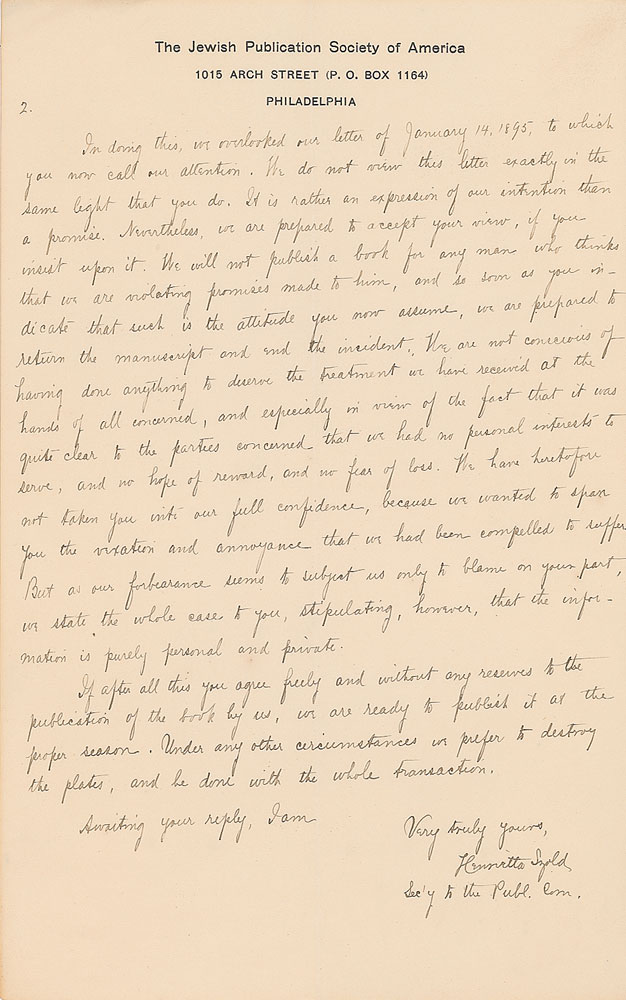 The Jewish Publication Society of America
1015 ARCH STREET (P. O. BOX 1164)
PHILADELPHIA
2.
In doing this, we overlooked our letter of January 14, 1895, to which
you now call our attention. We do not view this letter exactly in the
same light that you do. It is rather an expression of our intention than
a promise. Nevertheless, we are prepared to accept your view, if you
insist upon it. We will not publish a book for any man who thinks
that we are violating promises made to him, and so soon as you in-
dicate that such is the attitude you now assume, we are prepared to
return the manuscript and end the incident. We are not conscious of
having done anything to deserve the treatment we have received at the
hands of all concerned, and especially in view of the fact that it was
quite clear to the parties concerned that we had no personal interests to
serve, and no hope of reward, and no fear of loss. We have heretofore
not taken you into our full confidence, because we wanted to spare
you the vexation and annoyance that we had been compelled to suffer.
But as our forbearance seems to subject us only to blame on your part,
we state the whole case to you, stipulating, however, that the infor-
mation is purely personal and private.
If after all this you agree freely and without any reserves to the
publication of the book by us, we are ready to publish it at the
proper season. Under any other circumstances we prefer to destroy
the plates, and be done with the whole transaction.
Awaiting your reply, I am
Very truly yours,
Henrietta Szold
Sec'y to the Publ. Com.